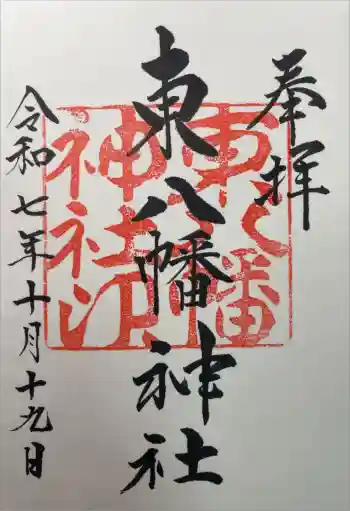 奉拝
東八幡神社
東八幡
神社印
令和七年十月十九日